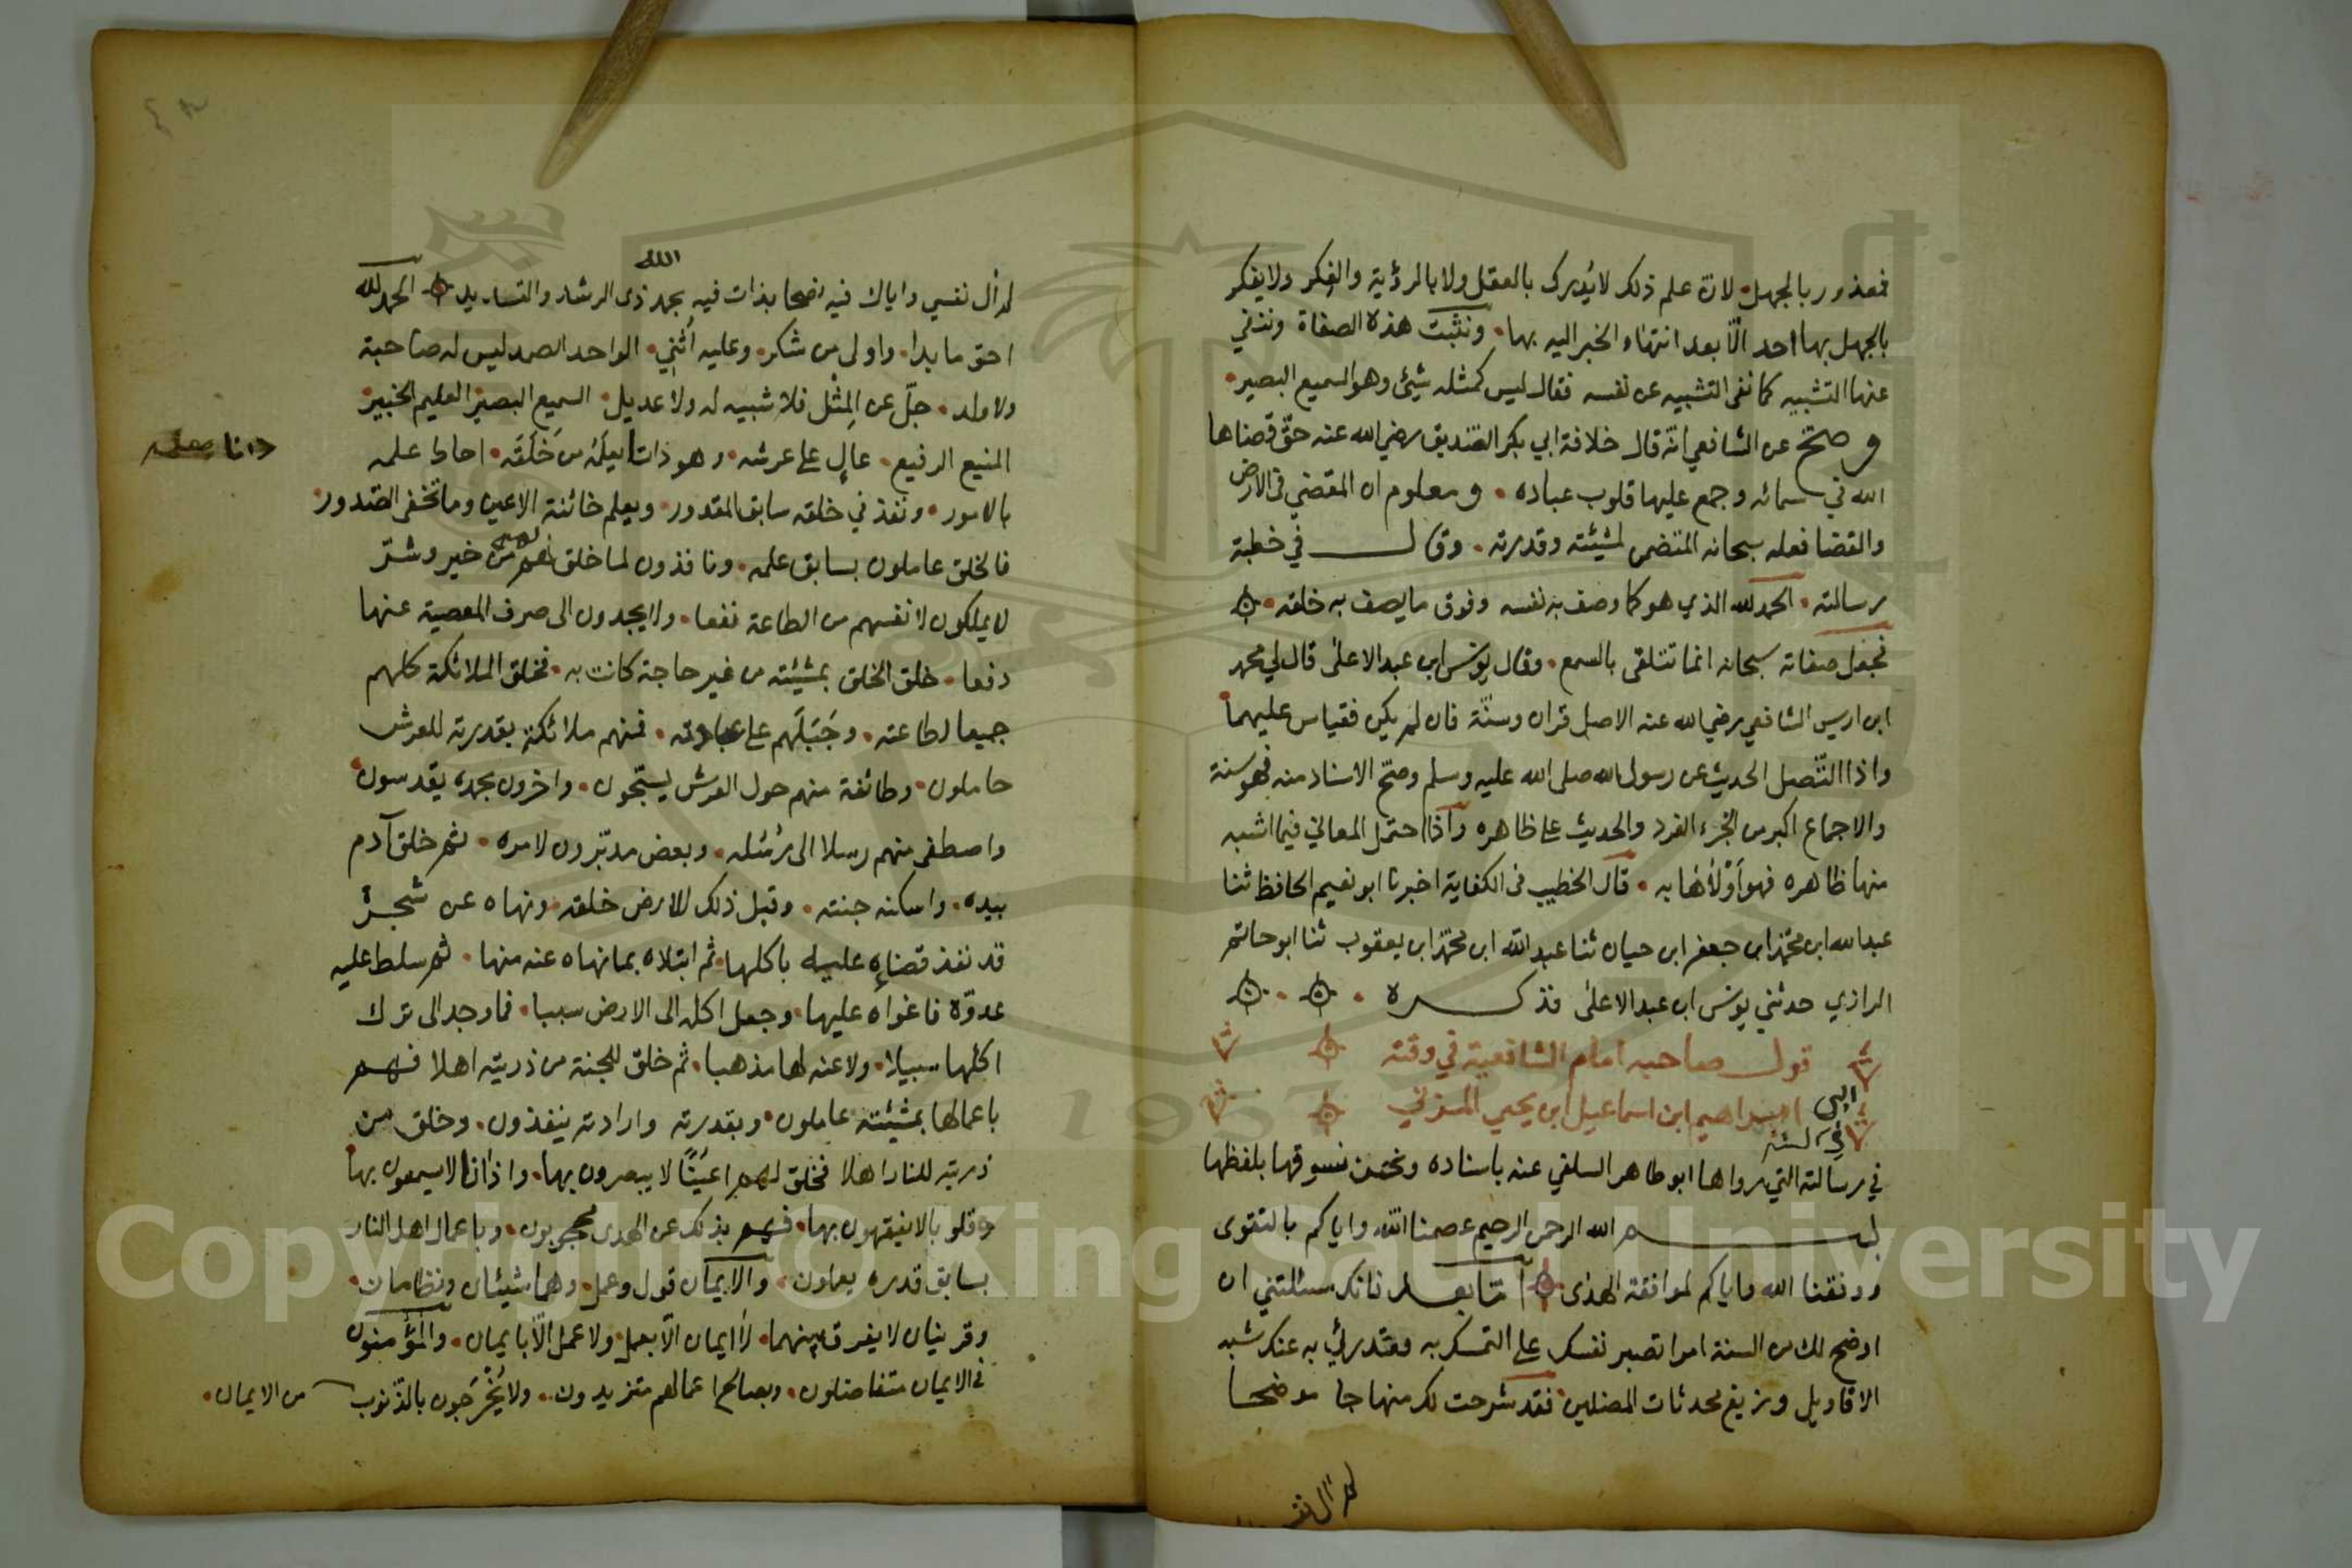 فمعذور بالجهل لان علم ذلك لا يُدرك بالعقل ولا بالرؤية والفكر ولا يفكر
بالجهل بها احد الّا بعد انتهاء الخبر اليه بها ونثبت هذه الصفاة وننفي
عنها التشبيه كما نفى التشبيه عن نفسه فقال ليس كمثله شيئ وهو السميع البصير
وصحّ عن الشافعي انّه قال خلافة ابي بكر الصّديق رضي الله عنه حقّ قضاها
الله في سمائه وجمع عليها قلوب عباده ومعلوم ان المقضي في الارض
والقضا فعله سبحانه المتضمن لمشيئته وقدرته وقال في خطبة
رسالته الحمد لله الذي هو كما وصف به نفسه وفوق ما يصف به خلقه
فجعل صفاته سبحانه انما تتلقى بالسمع وقال يونس ابن عبد الاعلى قال لي محمد
ابن ادريس الشافعي رضي الله عنه الاصل قران وسنّة فان لم يكن فقياس عليهما
واذا التّصل الحديث عن رسول الله صلى الله عليه وسلم وصحّ الاسناد منه فهو سنة
والاجماع اكبر من الخبر الفرد والحديث على ظاهره واذا احتمل المعاني فيما اشبه
منها ظاهره فهو أوْلاها به قال الخطيب في الكفاية اخبرنا ابو نعيم الحافظ ثنا
عبد الله ابن محمّد ابن جعفر ابن حيان ثنا عبد الله ابن محمّد ابن يعقوب ثنا ابو حاتم
الرازي حدثني يونس ابن عبد الاعلى فذكره
قول صاحبه امام الشافعية في وقته
ابي ابراهيم ابن اسماعيل ابن يحيي المزني
في السنة
في رسالته التي رواها ابو طاهر السلفي عنه باسناده ونحن نسوقها بلفظها
بسم الله الرحمن الرحيم عصمنا الله واياكم بالتقوى
ووفقنا الله واياكم لموافقة الهدى امّا بعد فانك سئلتني ان
اوضح لك من السنة امرا تصبر نفسك على التمسك به وتدرئ به عنك شبه
الاقاويل وزيغ محدثات المضلين فقد شرحت لك منهاجا موضحا
لم آل نفسي
لم آل نفسي واياك فيه نصحا بدات فيه بحمد الله ذي الرشد والتسديد الحمد لله
احق ما بدا واولى من شكر وعليه أثني الواحد الصمد ليس له صاحبة
ولا ولد جلّ عن المِثل فلا شبيه له ولا عديل السميع البصير العليم الخبير
المنيع الرفيع عالٍ على عرشه وهو دان بعلمه من خلقه احاط علمه
دانٍ بعلمه
بالامور ونفذ في خلقه سابق المقدور ويعلم خائنة الاعين وما تخفى الصّدور
فالخلق عاملون بسابق علمه ونافذون لما خلقهم له من خير وشرّ
لا يملكون لانفسهم من الطاعة نفعا ولا يجدون الى صرف المعصية عنها
دفعا خلق الخلق بمشيئته من غير حاجة كانت به فخلق الملائكة كلهم
جميعا لطاعته وجَبَلَهم على عبادته فمنهم ملائكة بقدرته للعرش
حاملون وطائفة منهم حول العرش يسبّحون واخرون بحمده يقدسون
واصطفى منهم رسلا الى رُسُله وبعض مدبّرون لامره ثم خلق آدم
بيده واسكنه جنته وقبل ذلك للارض خلقه ونهاه عن شجرة
قد نفذ قضاءه عليه باكلها ثم ابتلاه بما نهاه عنه منها ثم سلط عليه
عدوّه فاغواه عليها وجعل اكله الى الارض سببا فما وجد الى ترك
اكلها سبيلا ولا عنه لها مذهبا ثم خلق للجنة من ذريته اهلا فهم
باعمالها بمشيئته عاملون وبقدرته وارادته ينفذون وخلق من
ذريته للنار اهلا فخلق لهم اعينًا لا يبصرون بها واذانا لا يسمعون بها
وقلوبا لا يفقهون بها فهم بذلك عن الهدى محجوبون وباعمال اهل النار
بسابق قدره يعملون والايمان قول وعمل وهما شيئان ونظامان
وقرينان لا يفرق بينهما لا ايمان الّا بعمل ولا عمل الّا بايمان والمؤمنون
في الايمان متفاضلون وبصالح اعمالهم متزيدون ولا يُخْرَجون بالذّنوب من الايمان
Copyright © King Saud University
1957